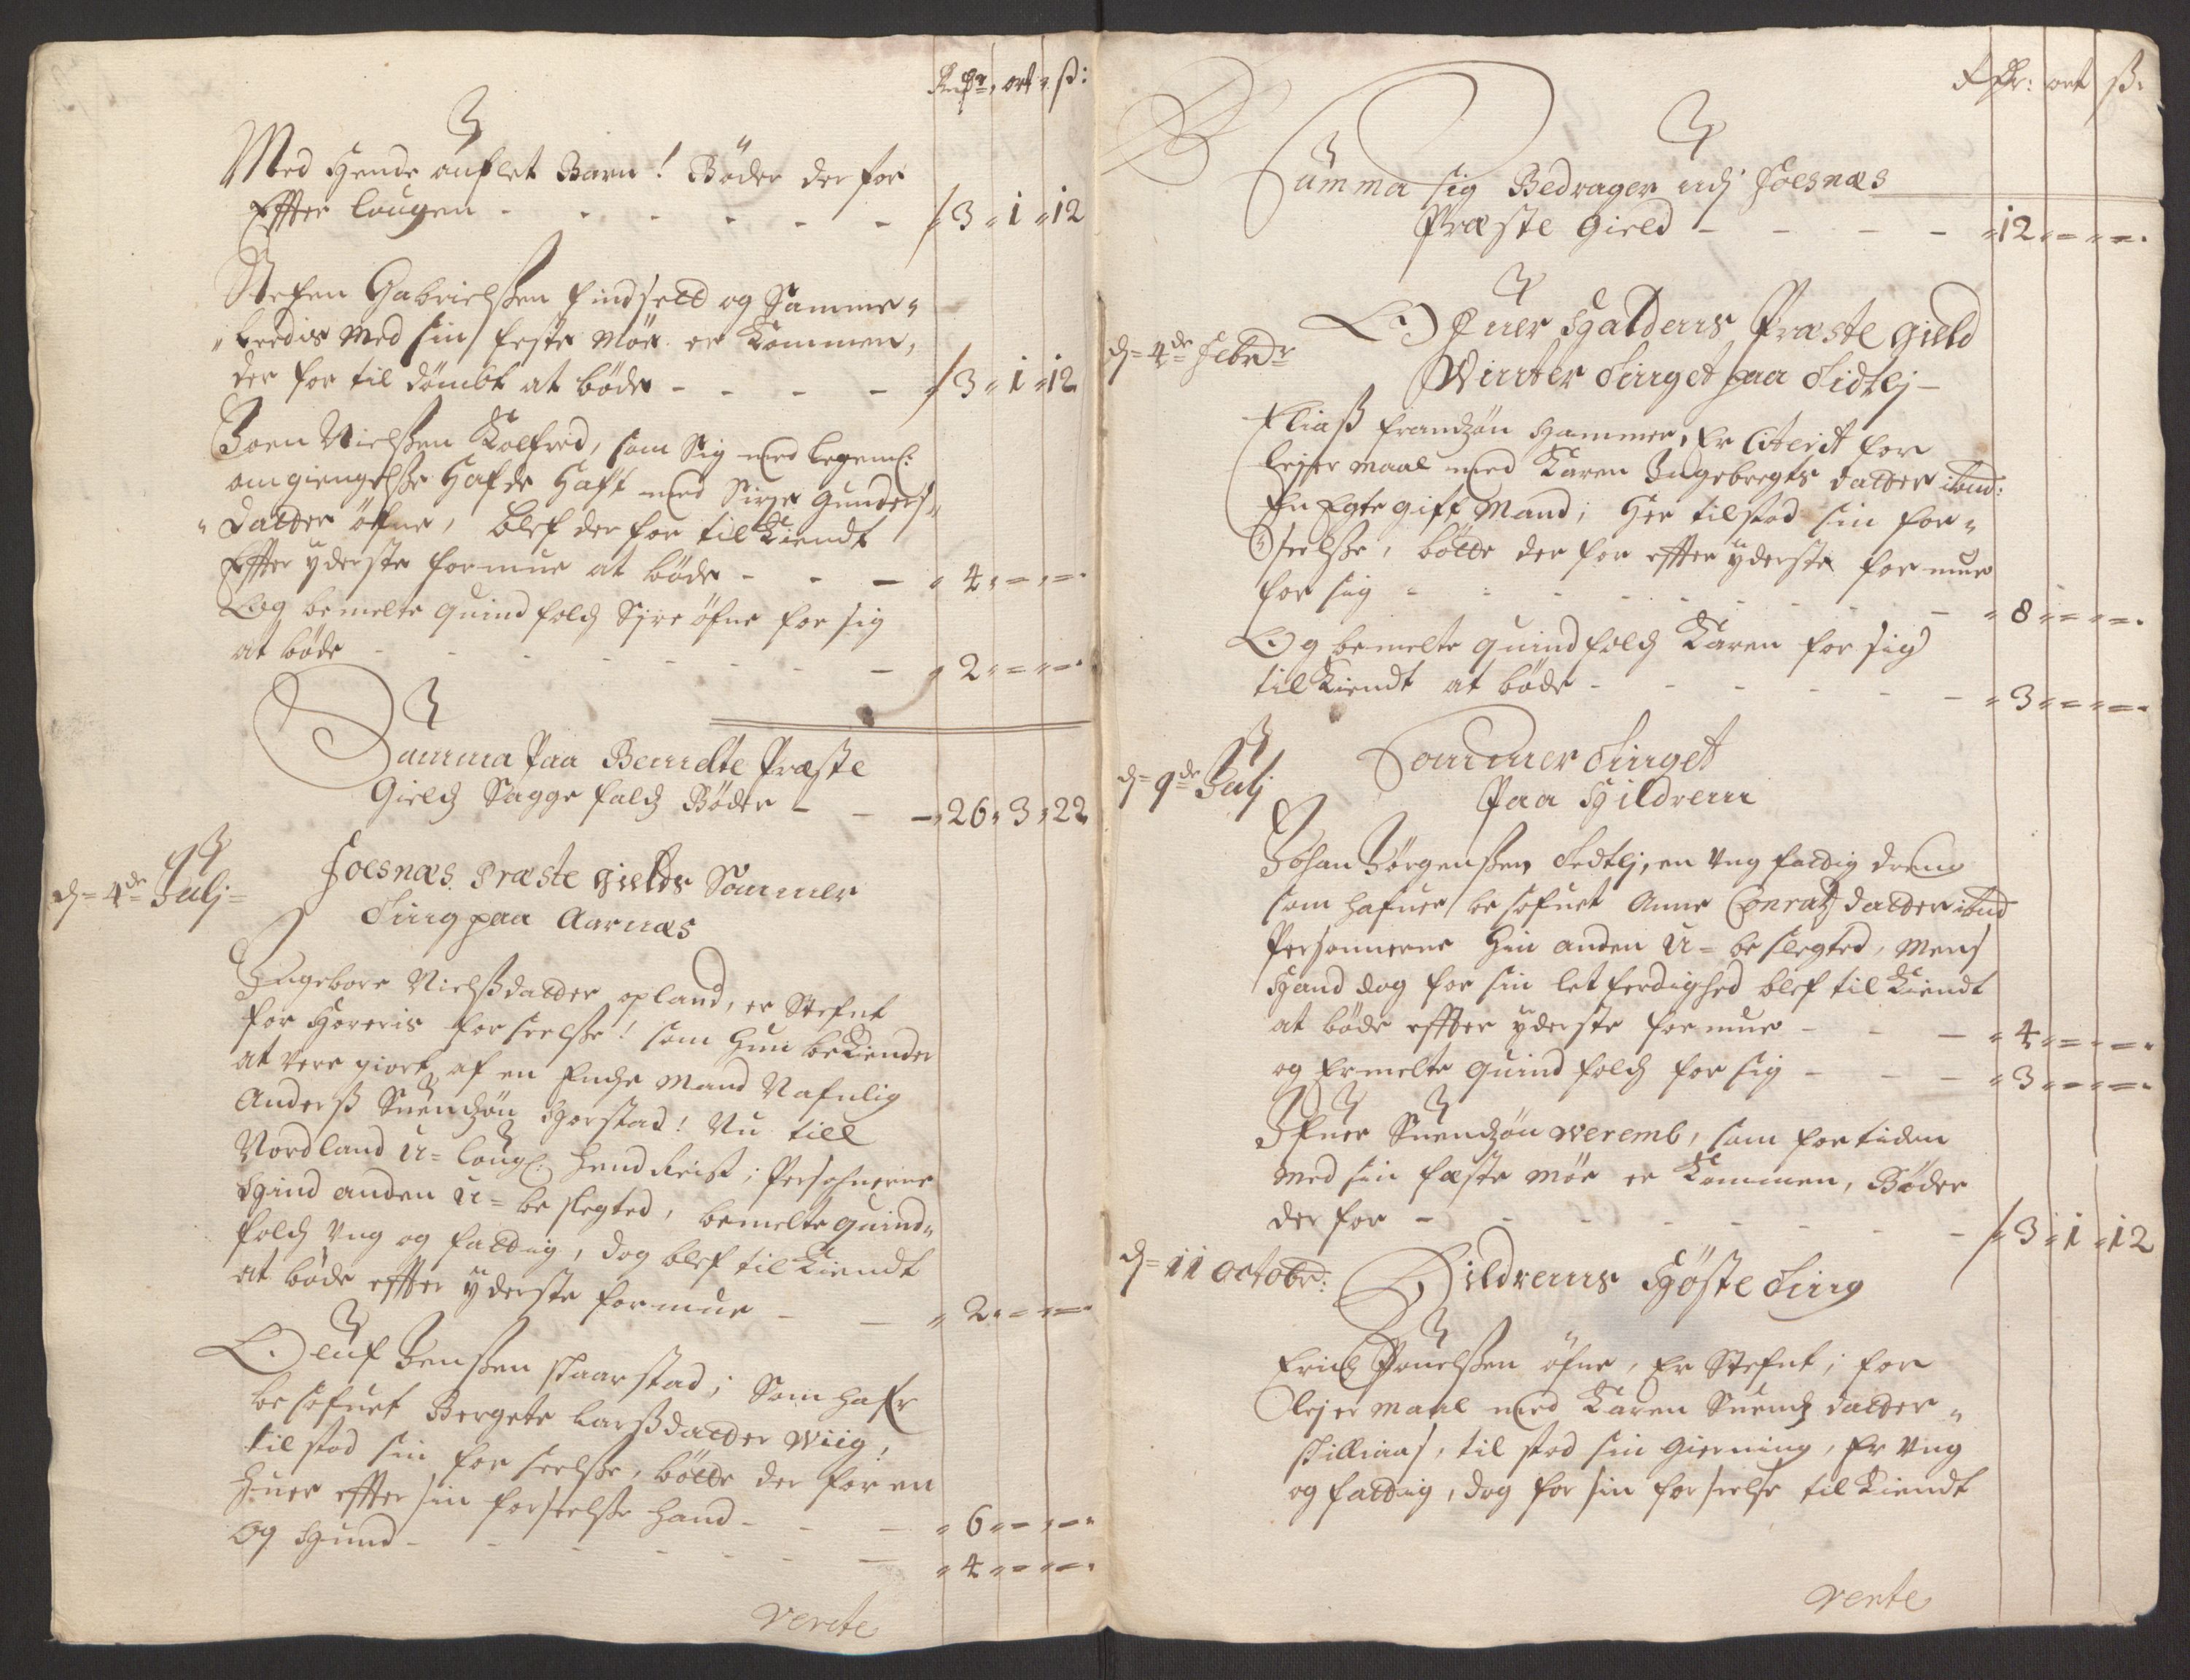 Rixdr, ort, ß:
Med Hende auflet Barn! Bøder der for
Effter lougen - - - - - - 3 " 1 " 12
Stefen Gabrielßen findsetd og Samme"
"leedis med sin feste Møe er Kommen,
der for til dømbt at bøde - - - - 3 " 1 " 12
Joen Nielßen Kolfred, som Sig med legeml:
omgiengelße Hafde Haft med Sirze Gunders"
"datter öfne, blef der for til Kiendt
Effter yderste formue at bøde - - - " 4 " = " = "
Og bemelte quindfolch Syre öfne for sig
at bøde - - - - - - - - " 2 " = " = "
Summa Paa Bemelte Præste
Gields Sagge falds Bøder - - - " 26 " 3 " 22
d= 4de Julj= Foesnæs Præste Gields Sommer
Ting paa Aarnæs
Ingebore Nielßdatter opland, er Stefnt
for Horeris forseelße! som hun bekiender
at vere giort af en Enche mand Nafnlig
Anderß Suendzön Horstad! Nu till
Nordland u=lougl: hend Reist; Persohnerne
Hind anden u=beslegted, bemelte quind"
folch ung og fattig, dog blef til Kiendt
at bøde effter yderste formue - - " 2 " = " = "
Oluf Jenßen Skaarstad; Som hafr
besofuet Bergete Larßdatter Wiig,
tilstod sin forseelße, bøtte der for en
huer effter sin forseelße hand - - - " 6 " = " = "
Og Hund - - - - - - - " 4 " = " = "
verte
Rdr: ort ß:
Summa sig Bedrager udj Foesnæs
Præste Gield - - - - " 12 " = " = "
d= 4de Febrr Ofuer Haldens Præste Gield
Winter Tinget paa Tidtlj -
Eliaß frandzön Hammer, Er Citerit for
lejermaal med Karen Ingebregts datter ibid:
En Egte gift Mand; Her tilstod sin for"
seelße, bøtte der for effter yderste formue
for sig - - - - - - - - " 8 " = " = "
Og bemelte quindfolch Karen for sig
til Kiendt at bøde - - - - - - " 3 " = " = "
d= 9de Julj Sommer Tinget
Paa Hildrem
Johan Jørgenßen Tedtlj, en ung fattig dreng
som hafuer besofuet Anne Conratz datter ibid
Personnerne hin anden u=beslegted, mens
Hand dog for sin letferdighed blef til Kiendt
at bøde effter yderste formue - - - " 4 " = " = "
og Ermelte quindfolch for sig - - - " 3 " = " = "
Ifuer Suendzön veremb, som for tiden
med sin fæste Møe er Kommen, Bøder
der for - - - - - - - 3 " 1 " 12
d= 11 octobr: Hildrems Høste Ting
Erich Pouelßen öfne, Er Stefnt; for
lejermaal med Karen Suends datter"
skilliaas, til stod sin gierning, Er ung
og fattig, dog for sin forseelse til Kiendt
verte